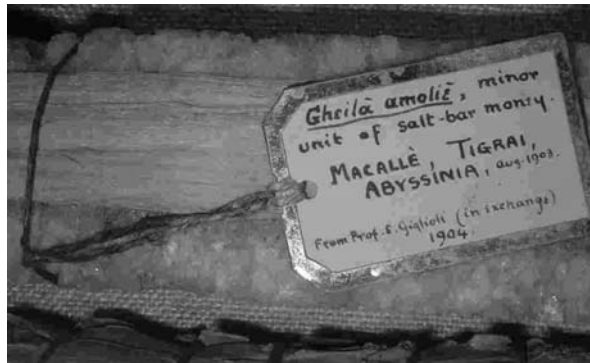 Gheilà amoliè, minor
unit of salt-bar money.
MACALLÈ, TIGRAI,
ABYSSINIA, aug. 1903.
From Prof. E. Giglioli (in exchange)
1904.